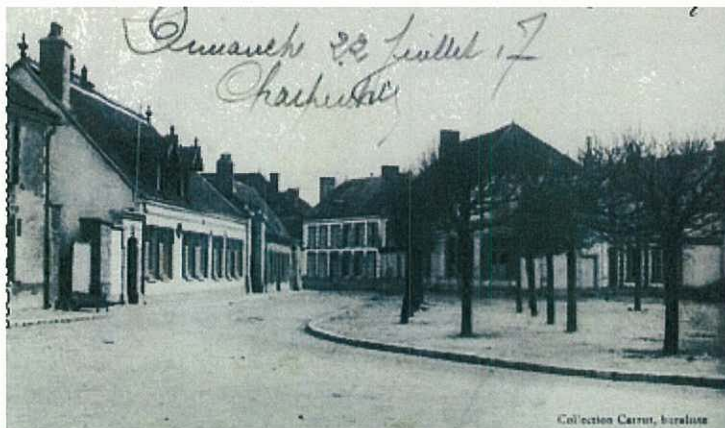 Dimanche 22 Juillet 17
Collection Carrut, buraliste